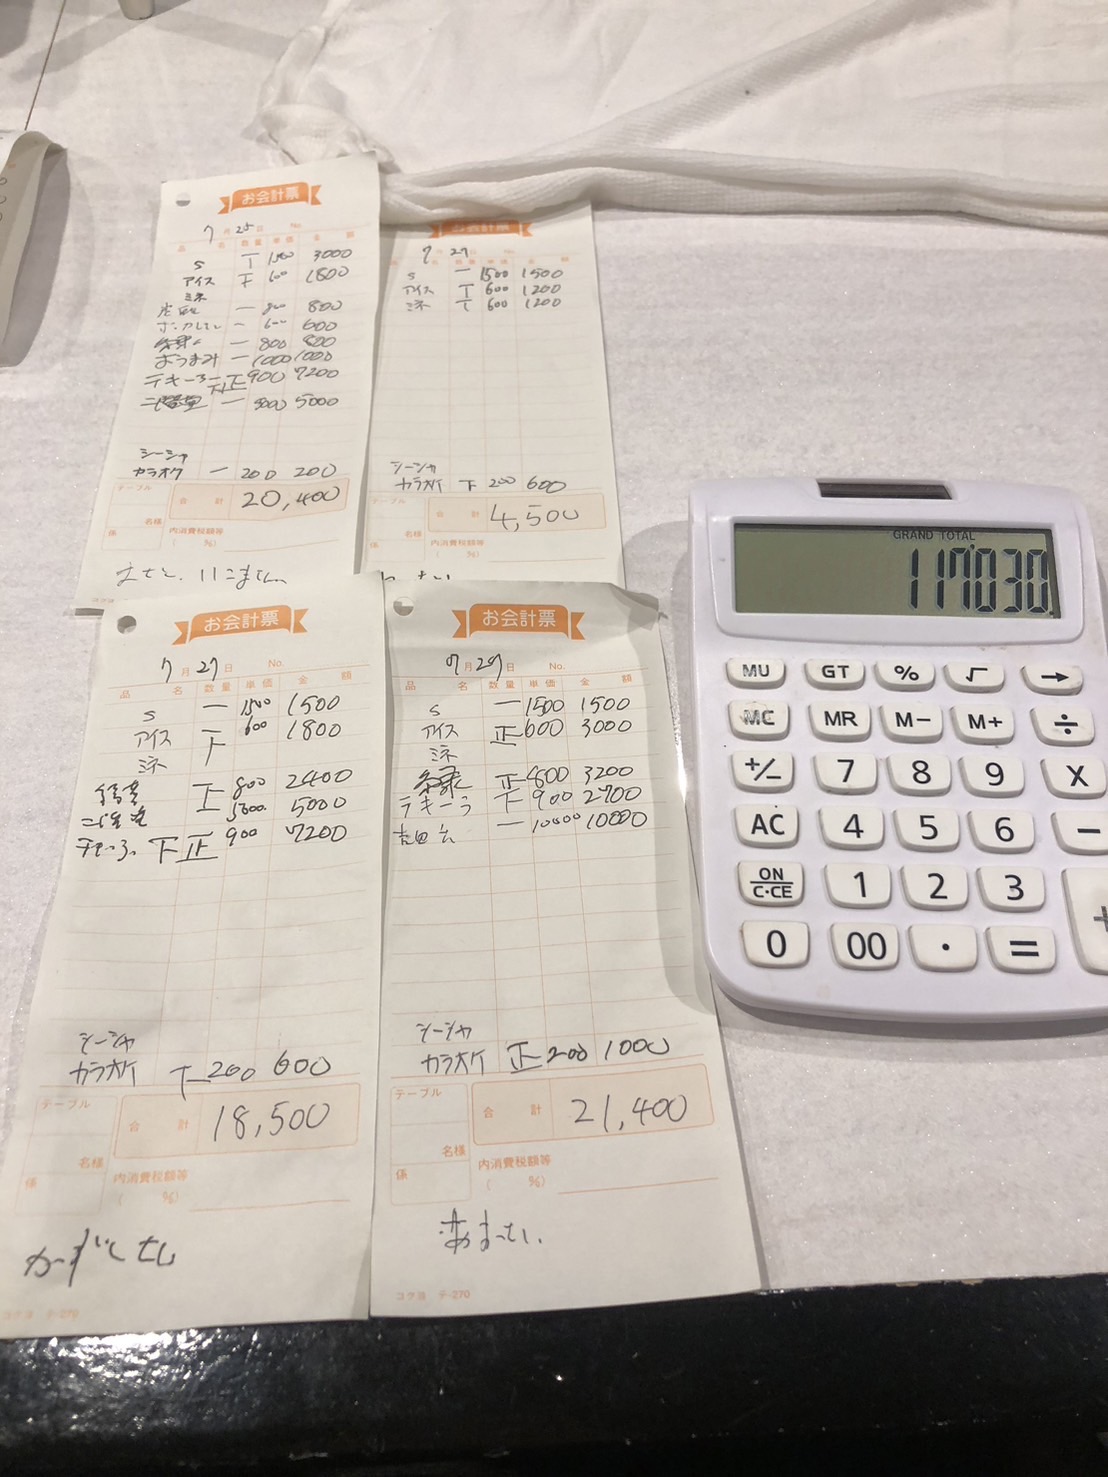 お会計票
7月25日 No.
品 名 数量 単価 金 額
S T 1500 3000
アイス 下 600 1800
ミネ
一 800 800
一 600 600
一 800 800
おつまみ 一 1000 1000
テキーラ 下正 900 7200
二階堂 一 5000 5000
シーシャ
カラオケ 一 200 200
テーブル
合 計 20,400
名様
係
内消費税額等
( %)
お会計票
7月27日 No.
名 数量 単価 金 額
S 一 1500 1500
アイス T 600 1200
ミネ T 600 1200
シーシャ
カラオケ 下 200 600
合 計 4,500
名様
係
内消費税額等
( %)
お会計票
7月27日 No.
品 名 数量 単価 金 額
S 一 1500 1500
アイス 下 600 1800
ミネ
800 2400
5000 5000
下正 900 7200
シーシャ
カラオケ 下 200 600
テーブル
合 計 18,500
名様
係
内消費税額等
( %)
コクヨ テ-270
お会計票
7月29日 No.
品 名 数量 単価 金 額
S 一 1500 1500
アイス 正 600 3000
ミネ
正 800 3200
テキーラ 下 900 2700
一 10000 10000
シーシャ
カラオケ 正 200 1000
テーブル
合 計 21,400
名様
係
内消費税額等
( %)
コクヨ テ-270
GRAND TOTAL
117'030.
MU GT % √ →
MC MR M− M+ ÷
+/− 7 8 9 X
AC 4 5 6 −
ON C·CE 1 2 3 +
0 00 · =